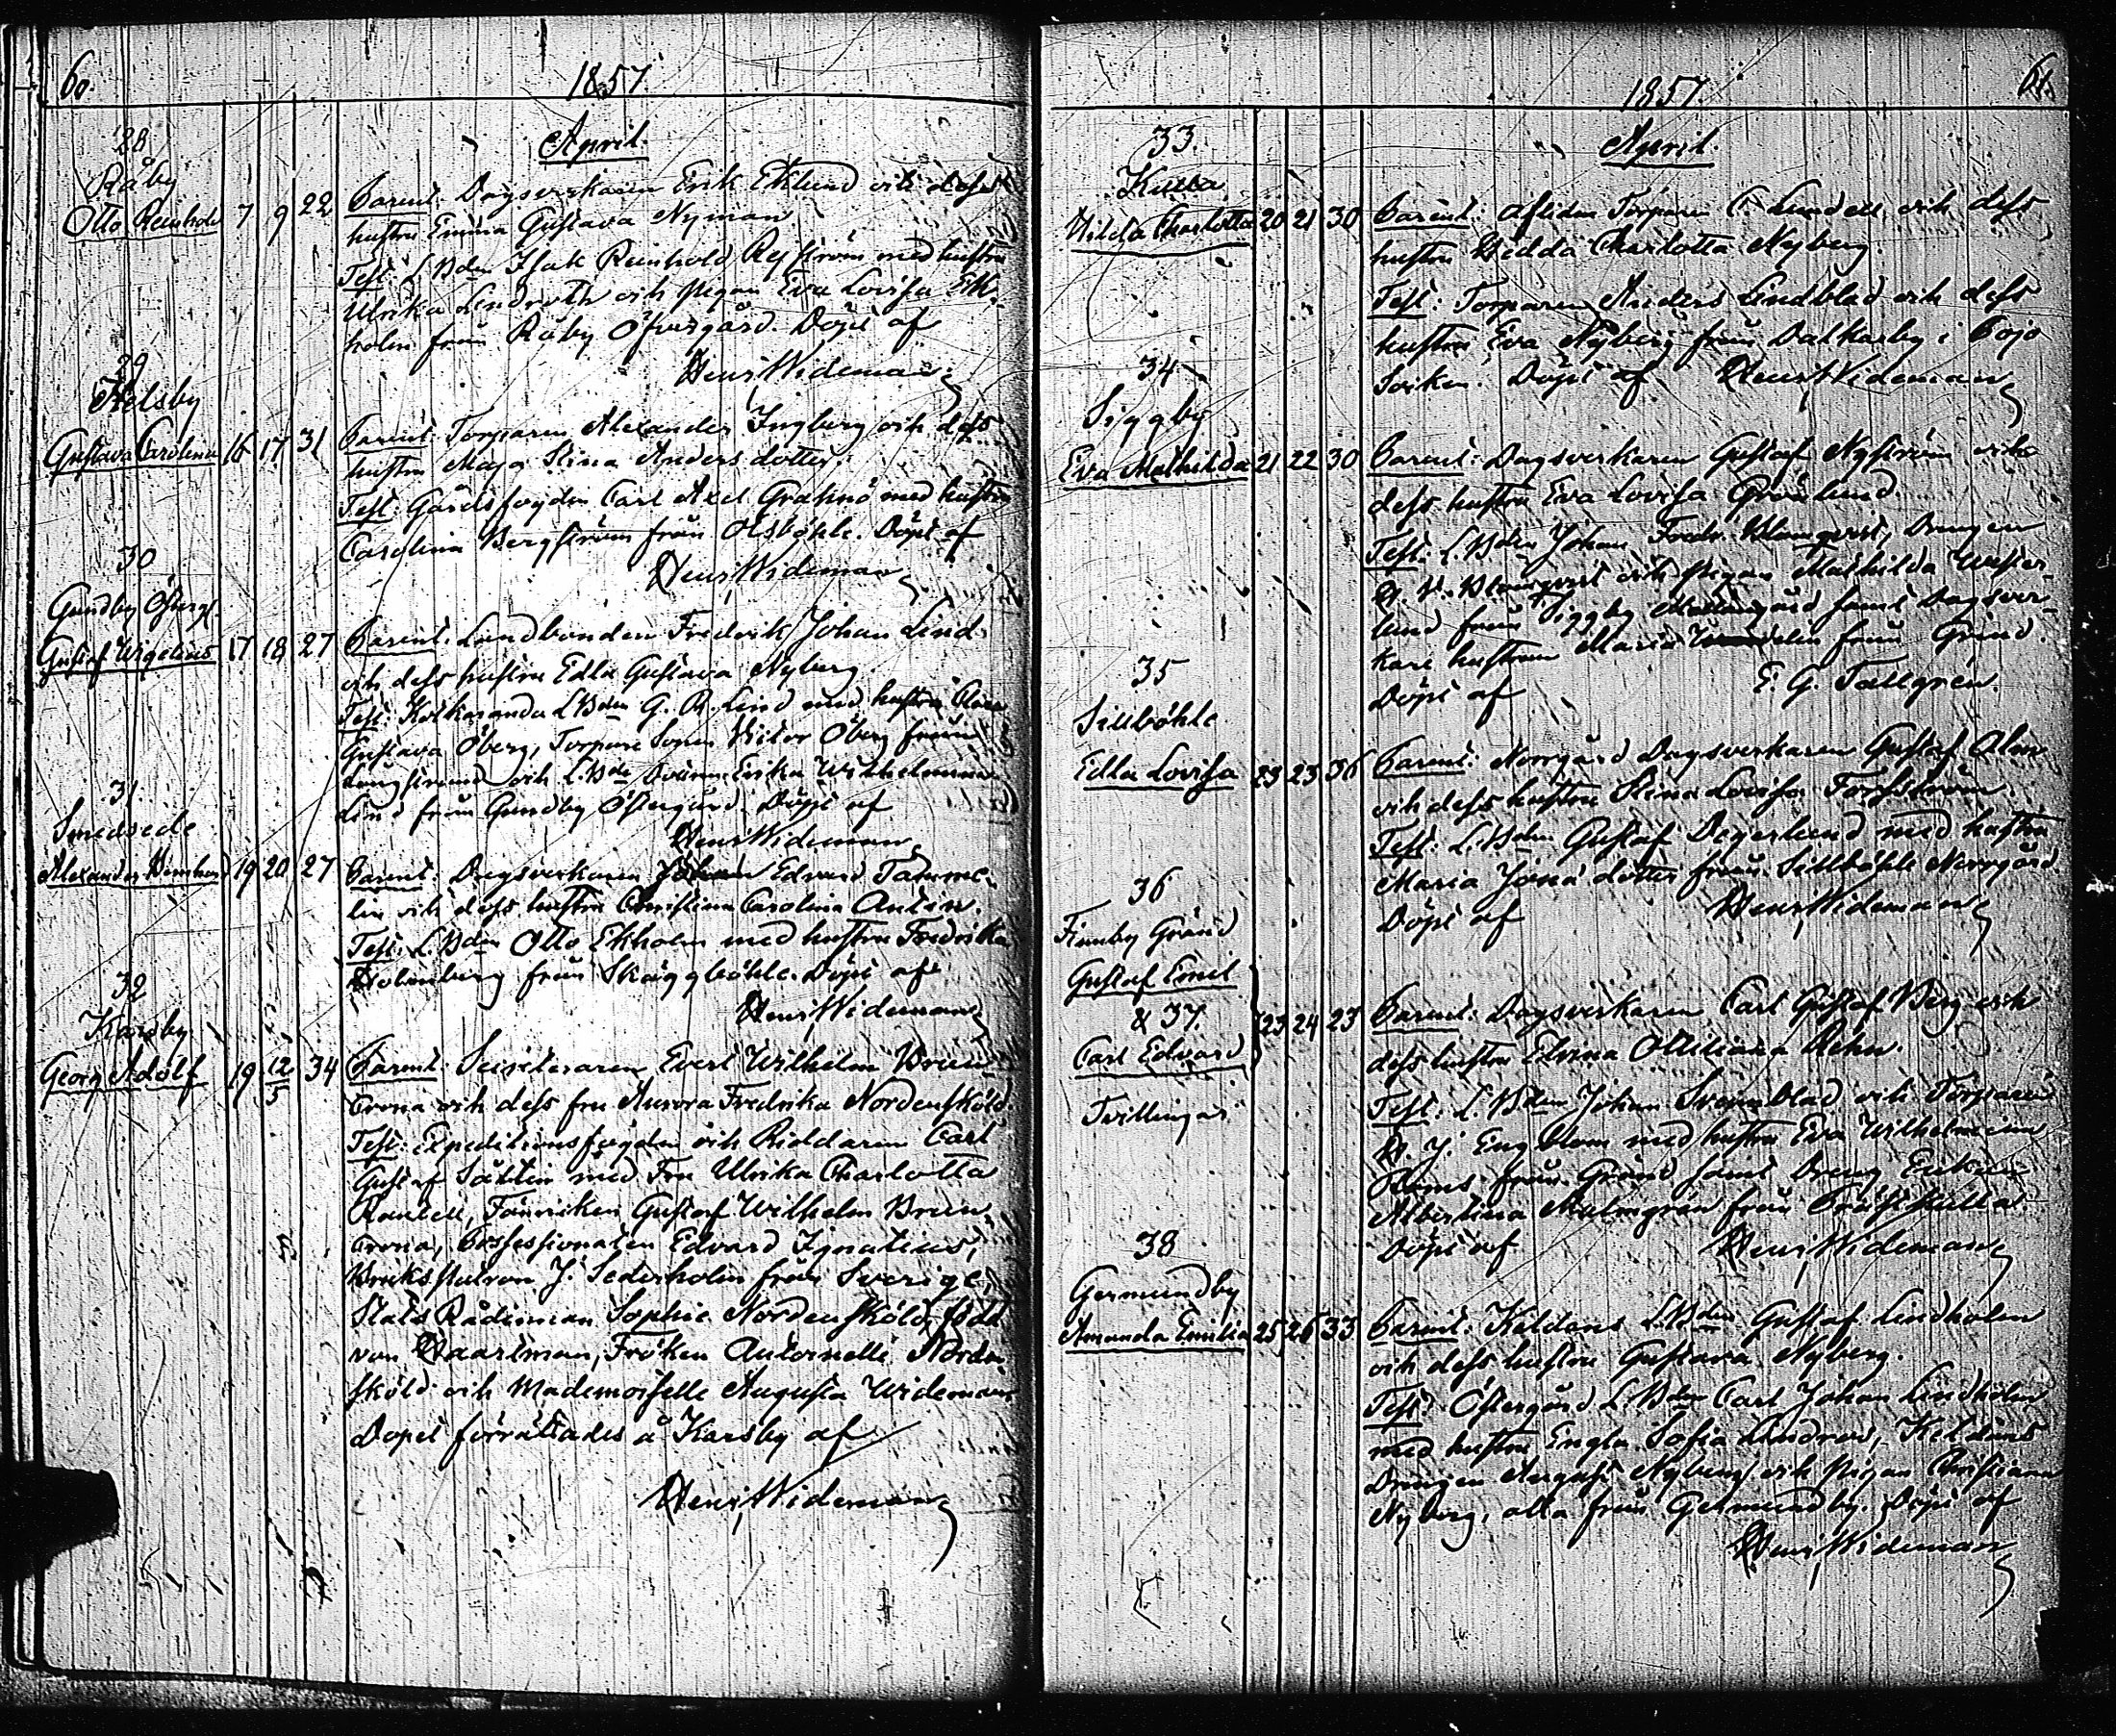 60.
1857.
April.
28
Råby
Otto Reinhold 7 9 22
Parent: Dagsverkaren Erik Eklund och dess
hustru Emma Gustava Nyman
Test: L.Bden Isak Reinhold Rejström med hustru
Ulrika Lindroth och pigan Eva Lovisa Ek-
holm från Råby Öfvergård. Döpt af
Henr. Wideman
29
Kelsby
Gustava Carolina 16 17 31
Parent: Torparen Alexander Ingberg och dess
hustru Maja Stina Anders dotter.
Test: Gårdsfogden Carl Axel Grahnö med hustru
Carolina Bergström från Olsböhle. Döpt af
Henr. Wideman
30
Gundby Österg.
Gustaf Wigelius 17 18 27
Parent: Landbonden Fredrik Johan Lind
och dess hustru Edla Gustava Nyberg
Test: L.Bden G. R. Lind med hustru
Gustava Öberg, Torpare Sonen Victor Öberg från
Långstrand och L.Bde Erika Wilhelmina
Lind från Gundby Östergård. Döpt af
Henr. Wideman
31.
Smedsede
Alexander Bernhard 19 20 27
Parent: Dagsverkaren Johan Edvard Tamme-
lin och dess hustru Christina Carolina Antin.
Test: L.Bden Otto Ekholm med hustru Fredrika
Holmberg från Skäggböhle. Döpt af
Henr. Wideman
32
Karsby
Georg Adolf 19 12/5 34
Parent: Evert Wilhelm Brun-
crona och dess fru Aurora Fredrika Nordensköld.
Test: Expeditionsfogden och Riddaren Carl
Gustaf Sahlin med Fru Ulrika Charlotta
Fänriken Gustaf Wilhelm Brun-
crona, Possessionaten Edvard Ignatius,
Brukspatron J. Sederholm från Sverige,
Stats Rådinnan Sophie Nordensköld, född
von Haartman, Fröken Antoinette Norden-
sköld och Mademoiselle Augusta Wideman
Dopet förrättades å Karsby af
Henr. Wideman
1857.
61.
April.
33.
Kulla
Hilda Charlotta 20 21 30
Parent: aflidne Torparen C. Lundell och dess
hustru Hedda Charlotta Nyberg.
Test: Torparen Anders Lindblad och dess
hustru Eva Nyberg från Dalkarby i Pojo
Socken. Döpt af Henr. Wideman
34
Siggby
Eva Mathilda 21 22 30
Parent: Dagsverkaren Gustaf Nyström och
dess hustru Eva Lovisa Grönlund.
Test: L.Bden Johan Fredr. Blomqvist, Drängen
Blomqvist och pigan Mathilda Wester-
lund från Siggby Mellangård samt Dagsver-
kare hustrun Maria från Gränd.
Döpt af E. G. Tallgren.
35
Sillböhle
Edla Lovisa 23 25 36
Parent: Norrgård Dagsverkaren Gustaf Alm
och dess hustru Stina Lovisa Forsström.
Test: L.Bden Gustaf Degerlund med hustru
Maria Jona dotter från Sillböhle Norrgård.
Döpt af Henr. Wideman
36
Finnby Gränd
Gustaf Emil
& 37.
Carl Edvard
Tvillingar
23 24 23
Parent: Dagsverkaren Carl Gustaf Berg och
dess hustru Edvina Ottiliana Rehn.
Test: L.Bden Johan Svenblad och Torparen
H. J. Engblom med hustru Eva Wilhelmina
från Gränd samt Dreng Enkan
Albertina Malmgrén från Prästkulla.
Döpt af Henr. Wideman
38
Germundby
Amanda Emilia 25 26 33
Parent: Keldans L.Bden Gustaf Lindholm
och dess hustru Gustava Nyberg.
Test: Östergård L.Bden Carl Johan Lindholm
med hustru Engla Sofia Lindroos, Keldans
Drengen August Nyberg och pigan Christiana
Nyberg, alla från Germundby. Döpt af
Henr. Wideman